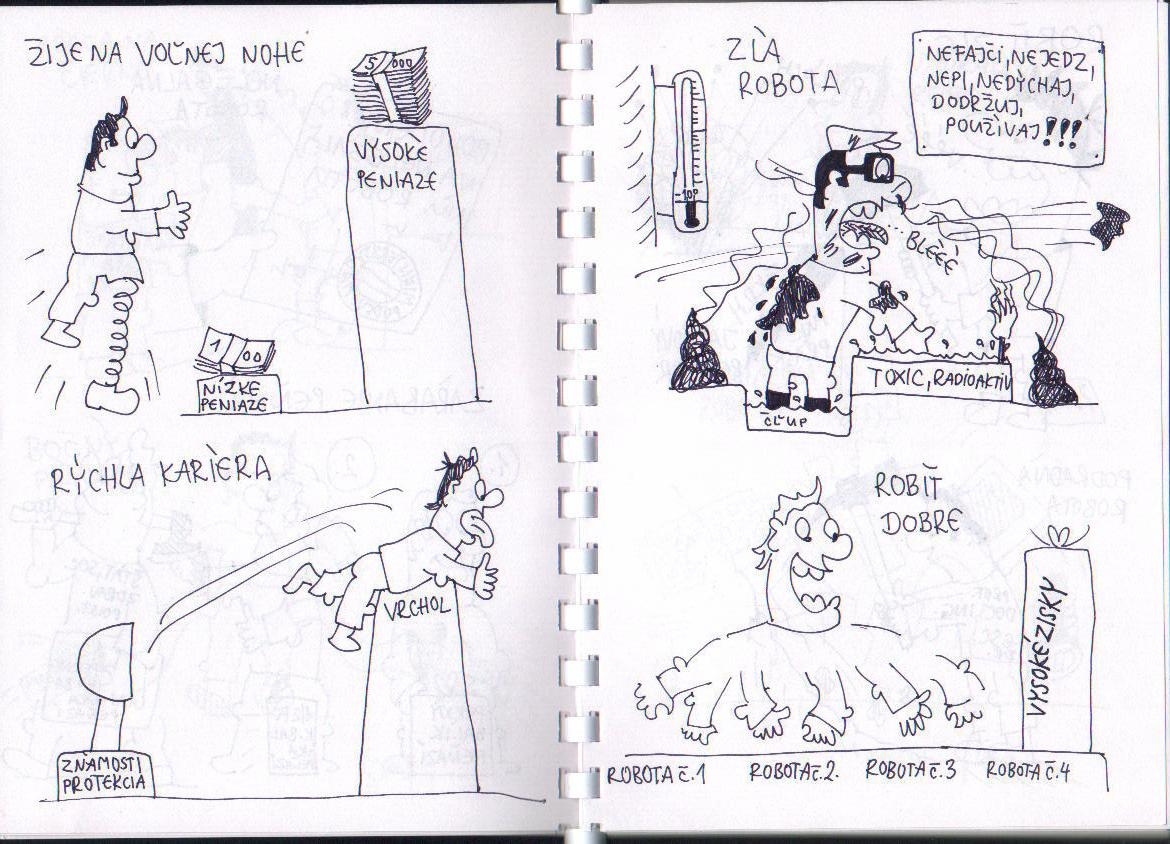 ŽIJE NA VOĽNEJ NOHE
5 000
VYSOKÉ
PENIAZE
1 00
NÍZKE
PENIAZE
RÝCHLA KARIÈRA
VRCHOL
ZNÁMOSTI
PROTEKCIA
ZLÀ
ROBOTA
NEFAJČI, NEJEDZ,
NEPI, NEDÝCHAJ,
DODRŽUJ,
POUŽÌVAJ!!!
-10°
BLÈÈÈ
TOXIC, RADIOAKTIV
ČĽUP
ROBIŤ
DOBRE
VYSOKÉ ZISKY
ROBOTA č.1
ROBOTA č.2.
ROBOTA č.3
ROBOTA č.4